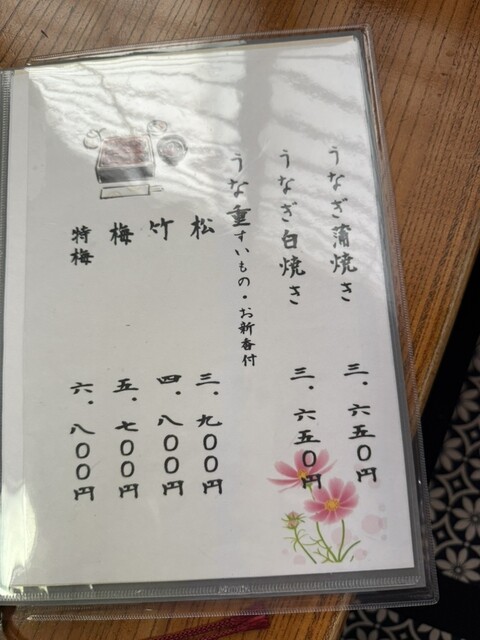 うなぎ蒲焼き 三、六五〇円
うなぎ白焼き 三、六五〇円
うな重すいもの・お新香付
松 三、九〇〇円
竹 四、八〇〇円
梅 五、七〇〇円
特梅 六、八〇〇円